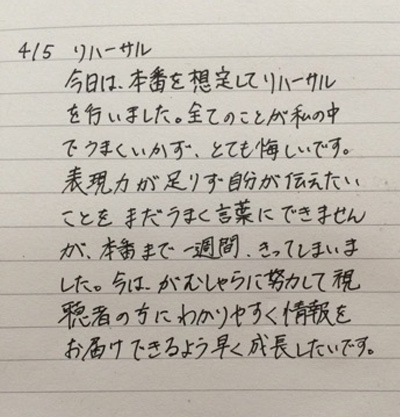 4/5 リハーサル
今日は、本番を想定してリハーサル
を行いました。全てのことが私の中
でうまくいかず、とても悔しいです。
表現力が足りず自分が伝えたい
ことをまだうまく言葉にできません
が、本番まで一週間、きってしまいま
した。今は、がむしゃらに努力して視
聴者の方にわかりやすく情報を
お届けできるよう早く成長したいです。